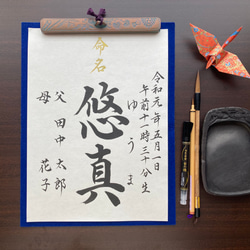 命名
令和元年五月一日
午前十一時三十分生
ゆうま
悠真
父 田中 太郎
母 花子